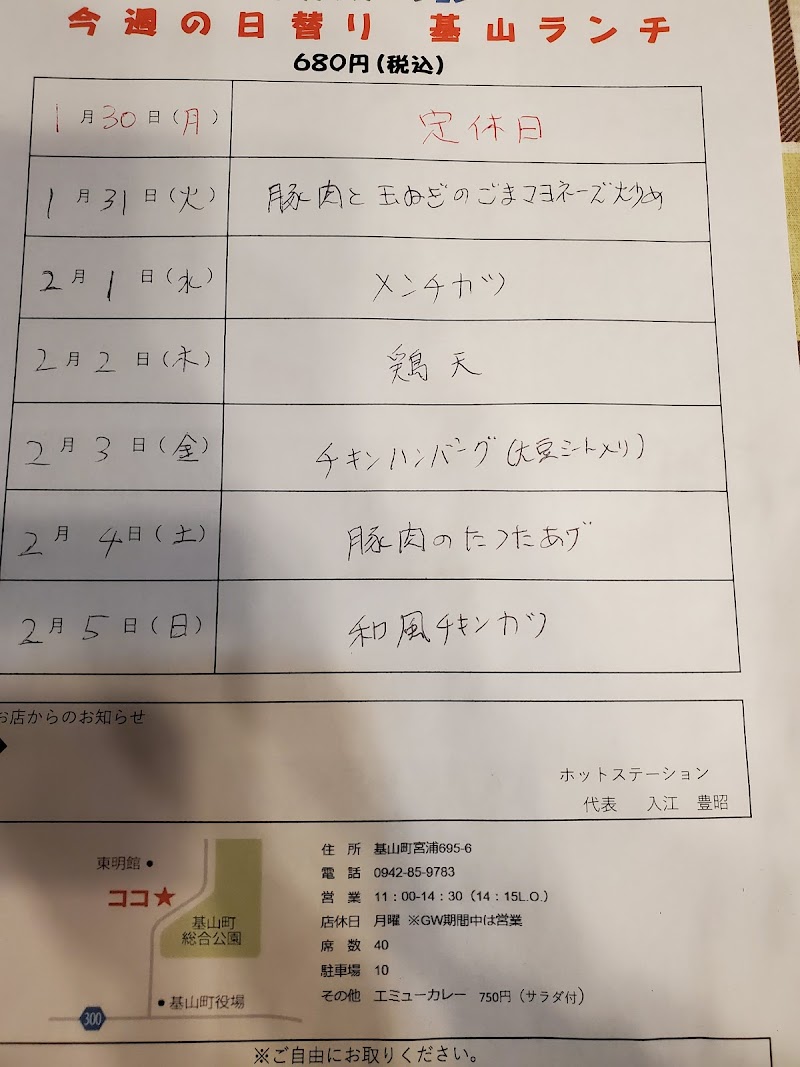 今週の日替り 基山ランチ
680円(税込)
1月30日(月) 定休日
1月31日(火) 豚肉と玉ねぎのごまマヨネーズ炒め
2月1日(水) メンチカツ
2月2日(木) 鶏天
2月3日(金) チキンハンバーグ(大豆ミートメリ)
2月4日(土) 豚肉のたつたあげ
2月5日(日) 和風チキンカツ
お店からのお知らせ
ホットステーション
代表 入江 豊昭
東明館
ココ★
基山町
総合公園
基山町役場
300
住所 基山町宮浦695-6
電話 0942-85-9783
営業 11:00-14:30(14:15L.O.)
店休日 月曜 ※GW期間中は営業
席数 40
駐車場 10
その他 エミューカレー 750円(サラダ付)
※ご自由にお取りください。